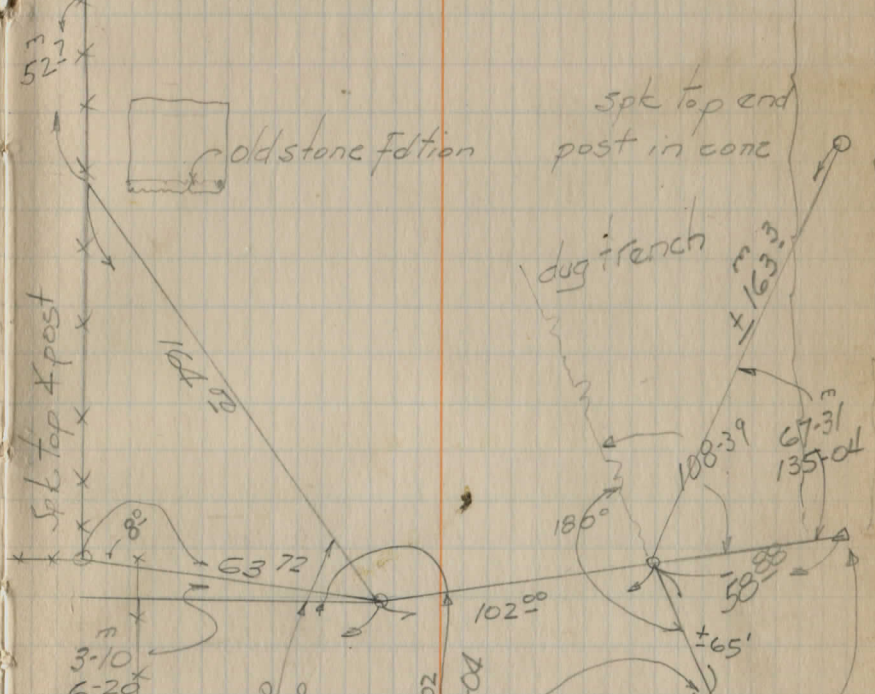 52.3
old stone Fdtion
spk top end
post in conc
dug trench
± 163.3
Spk top X post
108-39
67-31
135-04
180°
63 72
102 00
58 88
± 65'
3-10
6-20
02
-04